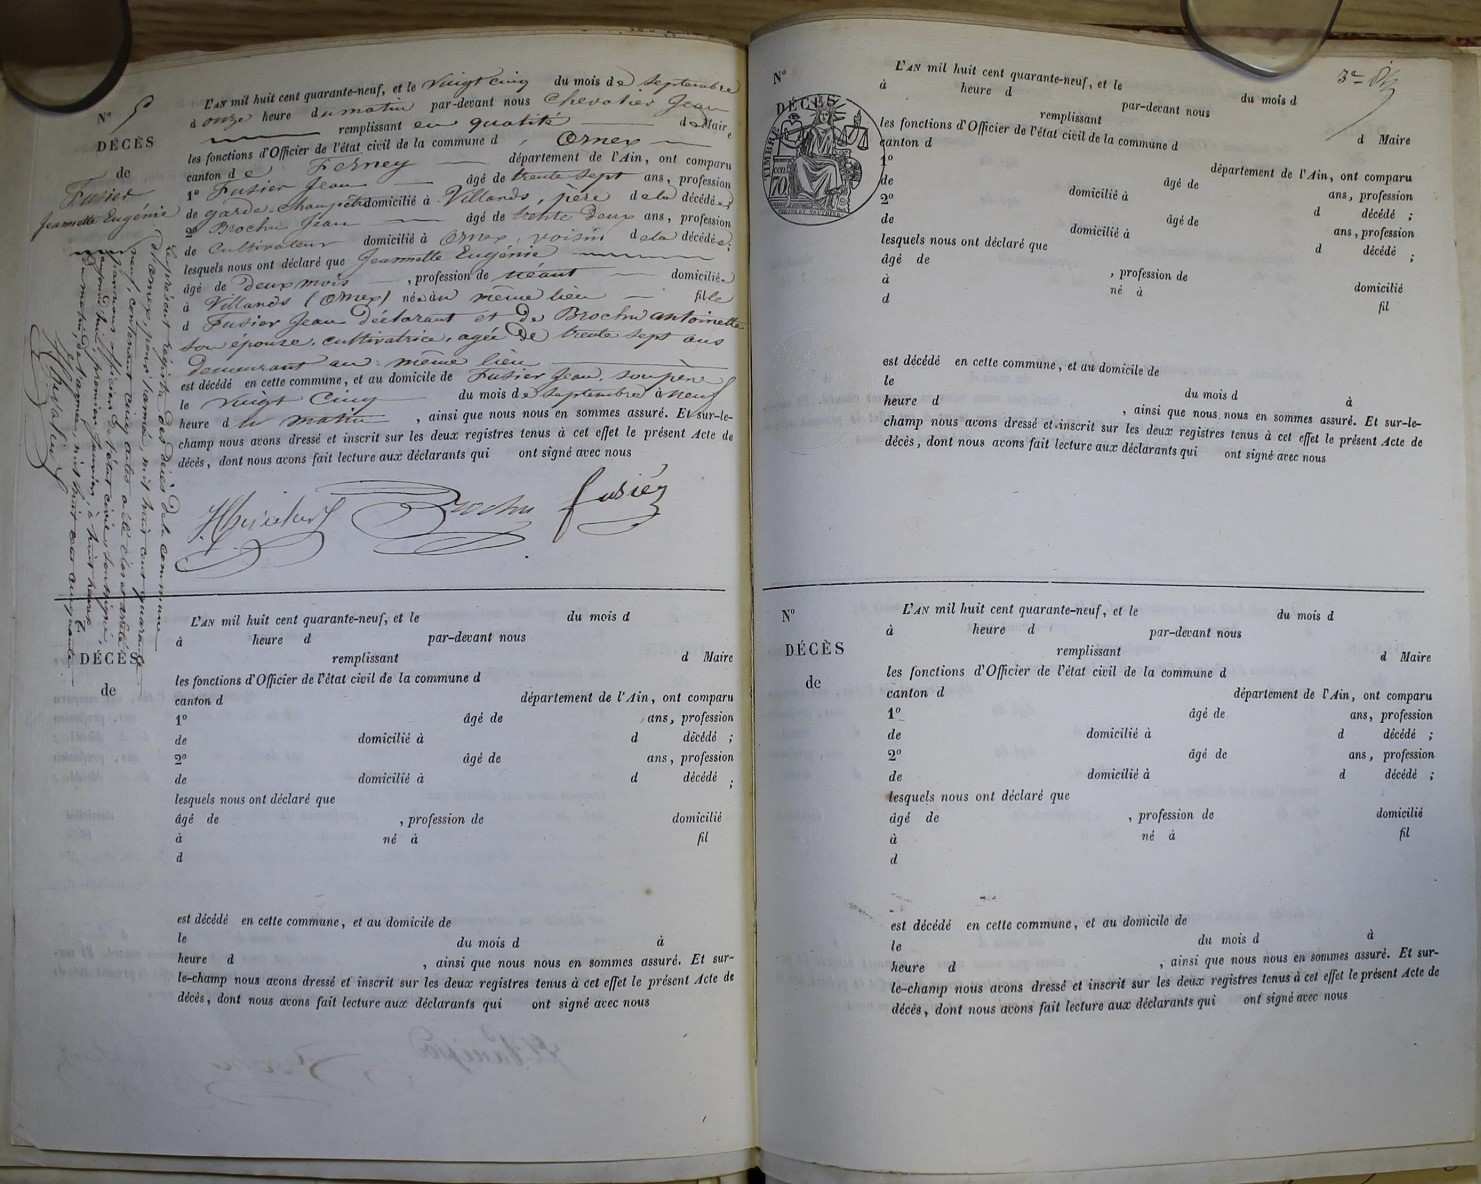 N° 5
DÉCÈS
de
Fusier
Jeannette Eugénie
L'AN mil huit cent quarante-neuf, et le Vingt cinq du mois de Septembre
à onze heure du matin par-devant nous Chevalier Jean
remplissant en qualité de Maire
les fonctions d'Officier de l'état civil de la commune d'Ornex
canton de Ferney département de l'Ain, ont comparu
1° Fusier Jean âgé de trente sept ans, profession
de garde-champêtre domicilié à Villards, père de la décédée;
2° Brochu Jean âgé de trente deux ans, profession
de Cultivateur domicilié à Ornex, voisin de la décédée;
lesquels nous ont déclaré que Jeannette Eugénie
âgé de deux mois, profession de néant domiciliée
à Villards (Ornex) née au même lieu fille
d Fusier Jean déclarant et de Brochu antoinette
son épouse, cultivatrice, agée de trente sept ans
demeurant au même lieu
est décédé en cette commune, et au domicile de Fusier Jean, son père
le Vingt Cinq du mois de Septembre à neuf
heure d u matin, ainsi que nous nous en sommes assuré. Et sur-le-
champ nous avons dressé et inscrit sur les deux registres tenus à cet effet le présent Acte de
décès, dont nous avons fait lecture aux déclarants qui ont signé avec nous
Brochu fusier
Le présent registre des décès de la commune
d'ornex, pour l'année mil huit cent quarante
neuf, contenant cinq actes a été clos et arrêté
par nous officier de l'état civil soussigné
aujourd'hui premier janvier, à huit heures
du matin, de l'année mil huit cent cinquante
Chevalier J
DÉCÈS
de
L'AN mil huit cent quarante-neuf, et le du mois d
à heure d par-devant nous
remplissant d Maire
les fonctions d'Officier de l'état civil de la commune d
canton d département de l'Ain, ont comparu
1° âgé de ans, profession
de domicilié à d décédé ;
2° âgé de ans, profession
de domicilié à d décédé ;
lesquels nous ont déclaré que
âgé de , profession de domicilié
à né à fil
d
est décédé en cette commune, et au domicile de
le du mois d à
heure d , ainsi que nous nous en sommes assuré. Et sur-
le-champ nous avons dressé et inscrit sur les deux registres tenus à cet effet le présent Acte de
décès, dont nous avons fait lecture aux déclarants qui ont signé avec nous
N°
DÉCÈS
TIMBRE
70
L'AN mil huit cent quarante-neuf, et le du mois d
à heure d par-devant nous
remplissant d Maire
les fonctions d'Officier de l'état civil de la commune d
canton d département de l'Ain, ont comparu
1° âgé de ans, profession
de domicilié à d décédé ;
2° âgé de ans, profession
de domicilié à d décédé ;
lesquels nous ont déclaré que
âgé de , profession de domicilié
à né à fil
d
est décédé en cette commune, et au domicile de
le du mois d à
heure d , ainsi que nous nous en sommes assuré. Et sur-le-
champ nous avons dressé et inscrit sur les deux registres tenus à cet effet le présent Acte de
décès, dont nous avons fait lecture aux déclarants qui ont signé avec nous
N°
DÉCÈS
de
L'AN mil huit cent quarante-neuf, et le du mois d
à heure d par-devant nous
remplissant d Maire
les fonctions d'Officier de l'état civil de la commune d
canton d département de l'Ain, ont comparu
1° âgé de ans, profession
de domicilié à d décédé ;
2° âgé de ans, profession
de domicilié à d décédé ;
lesquels nous ont déclaré que
âgé de , profession de domicilié
à né à fil
d
est décédé en cette commune, et au domicile de
le du mois d à
heure d , ainsi que nous nous en sommes assuré. Et sur-
le-champ nous avons dressé et inscrit sur les deux registres tenus à cet effet le présent Acte de
décès, dont nous avons fait lecture aux déclarants qui ont signé avec nous